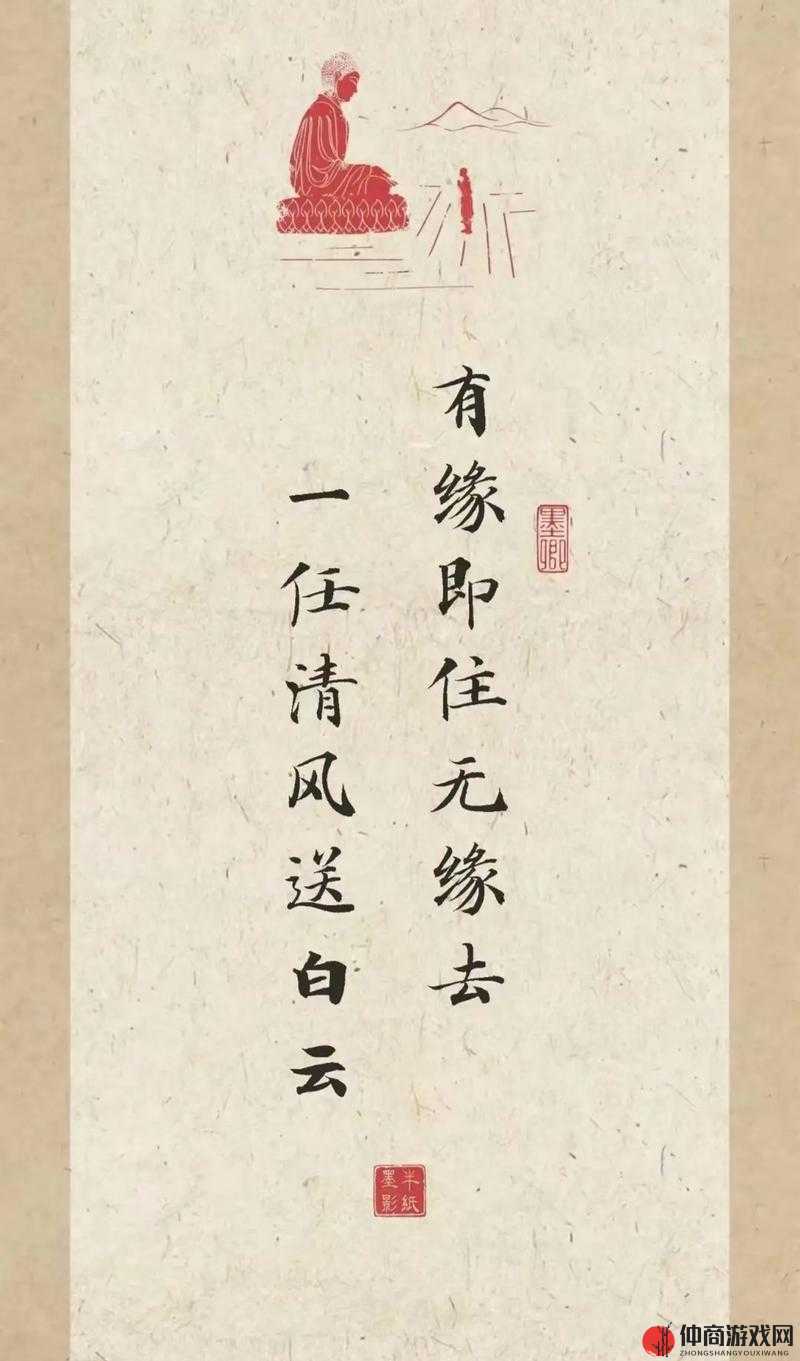 有缘即住无缘去
一任清风送白云
墨卿
半纸墨影
仲商游戏网
ZHONGSHANGYOUXIWANG